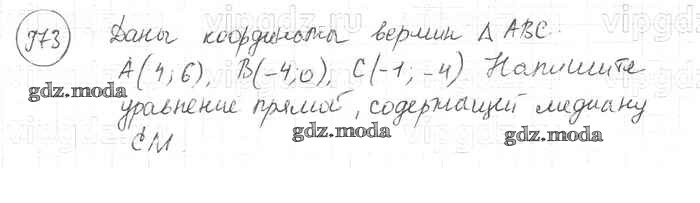 973 Даны координаты вершин Δ ABC.
A(4; 6), B(-4; 0), C(-1; -4) Напишите
уравнение прямой, содержащей медиану
CM
gdz.moda
gdz.moda
gdz.moda
gdz.moda